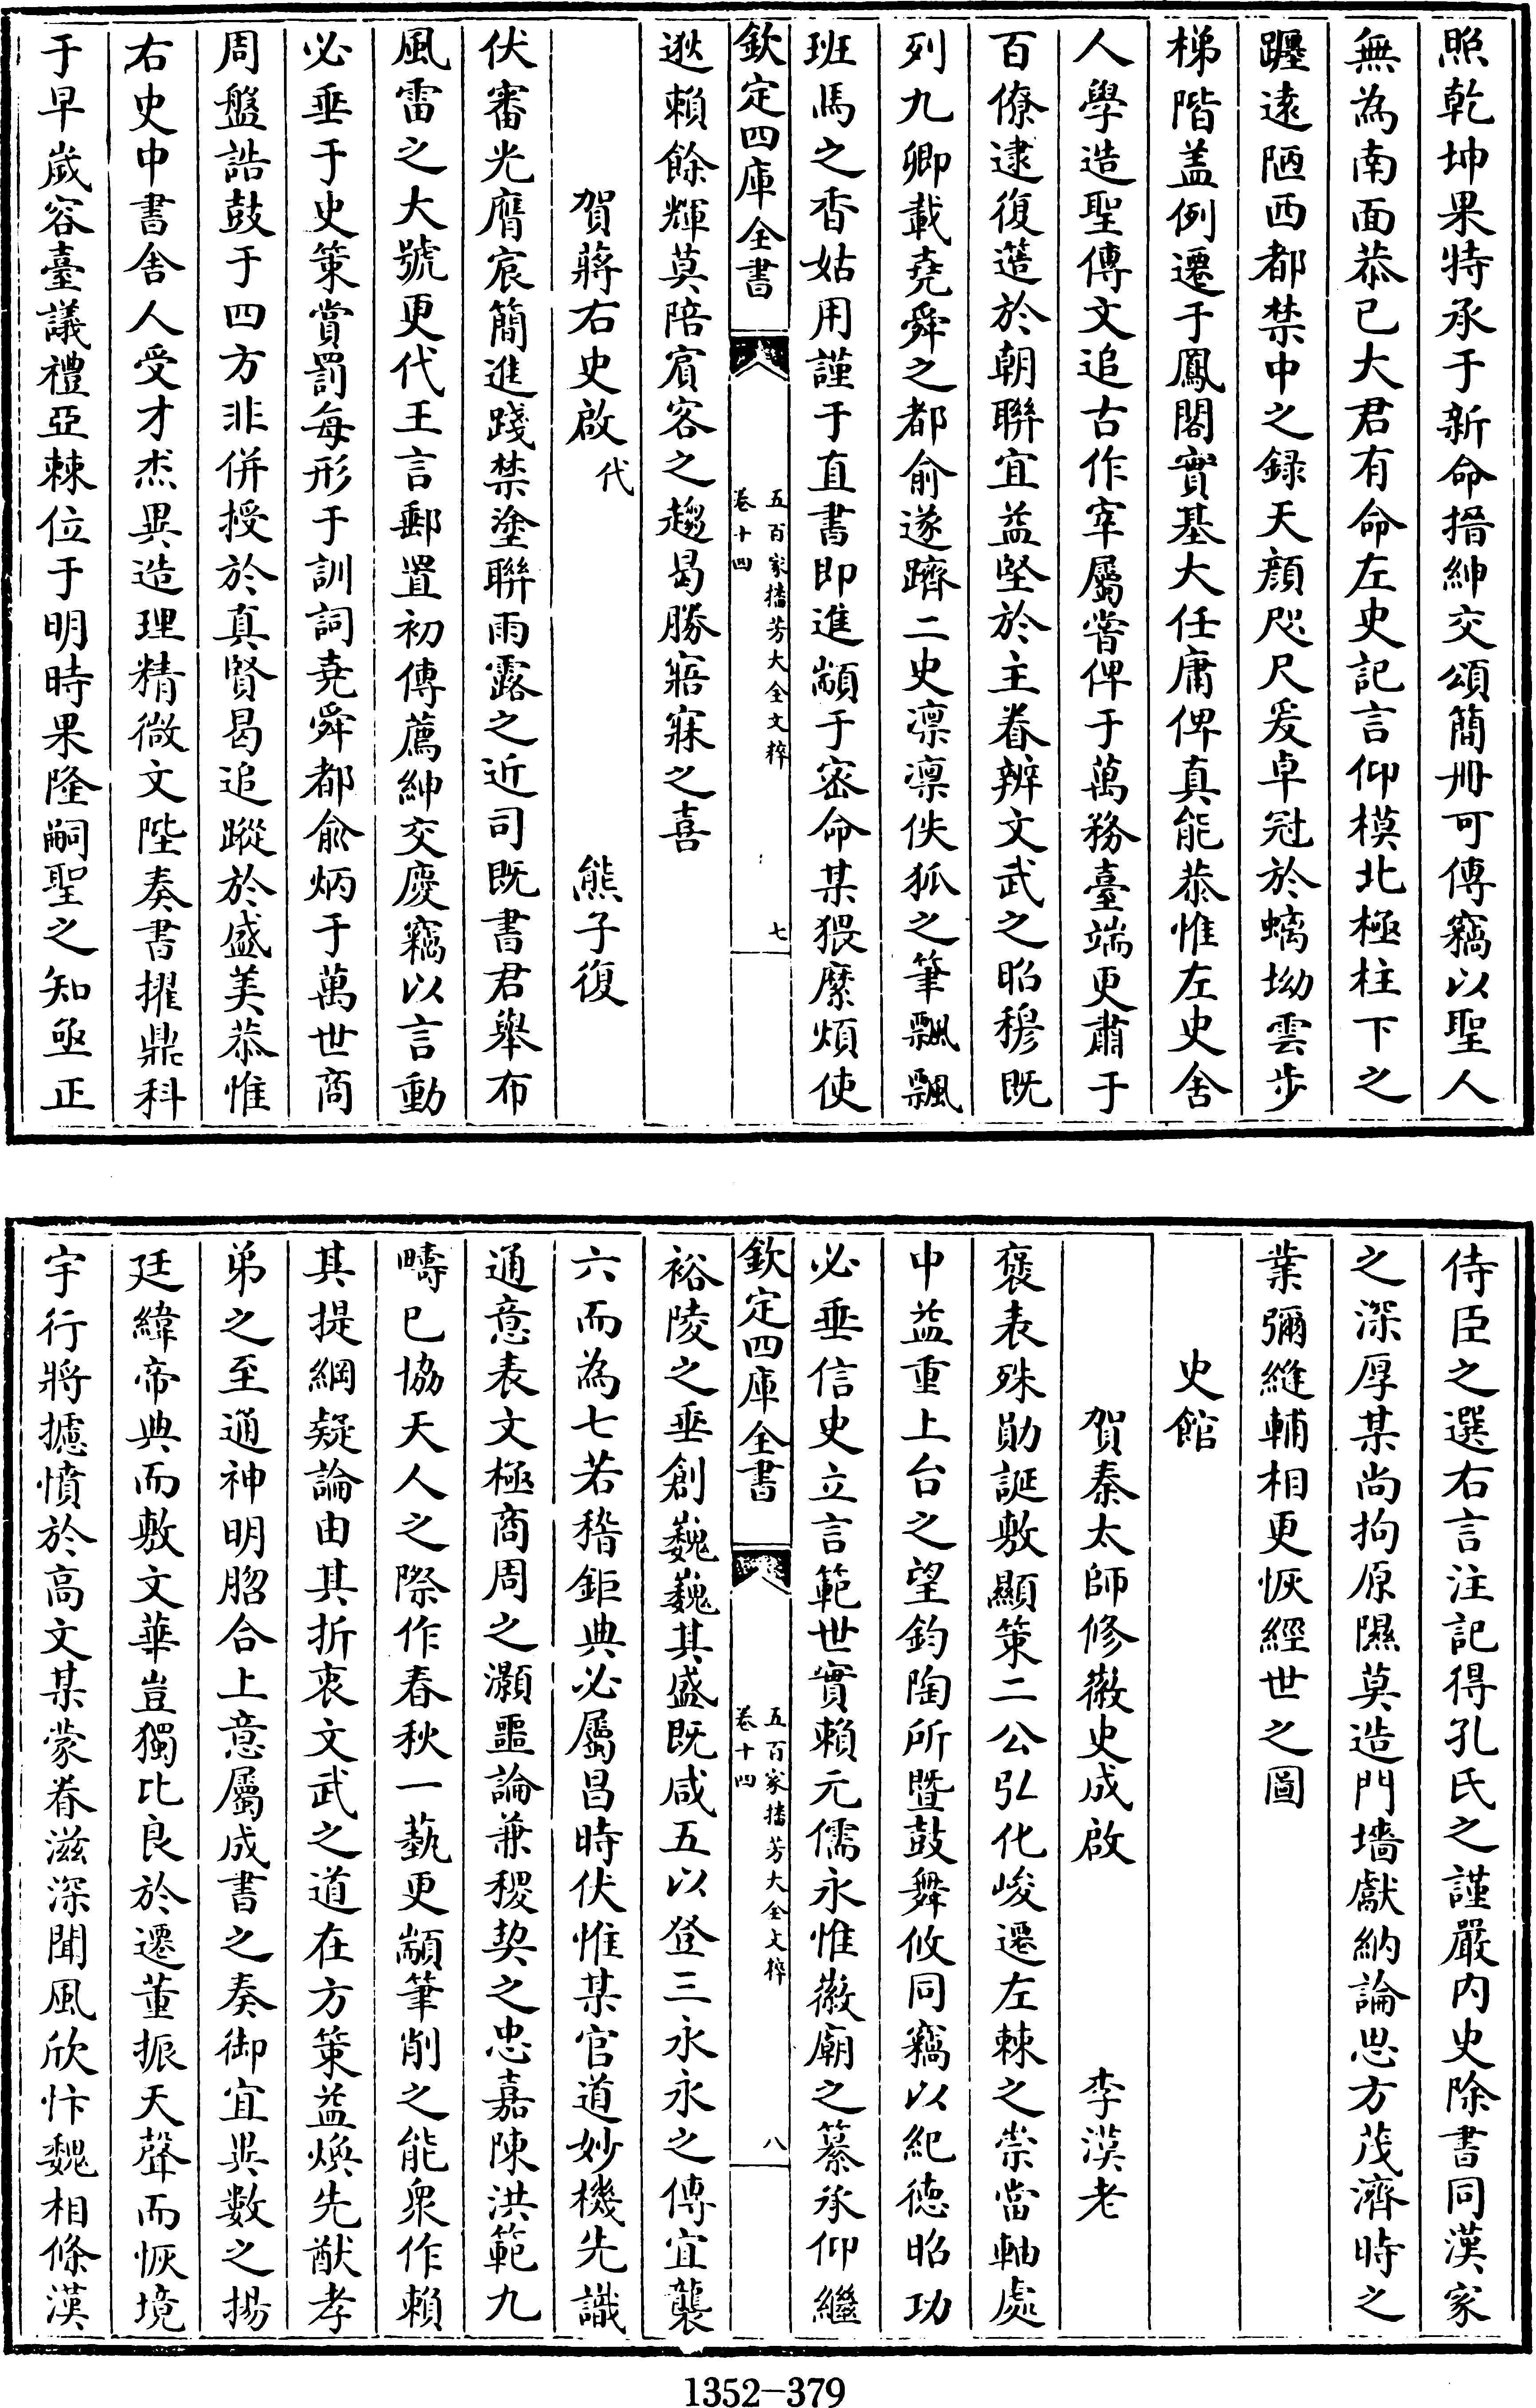 照乾坤果特承于新命搢紳交頌簡冊可傳竊以聖人
無為南面恭已大君有命左史記言仰模北極柱下之
躔遠陋西都禁中之録天顔咫尺爰卓冠於螭坳雲步
梯階盖例遷于鳳閣實基大任庸俾真能恭惟左史舍
人學造聖傳文追古作宰屬嘗俾于萬務臺端更肅于
百僚逮復簉於朝聯宜益堅於主眷辨文武之昭穆既
列九卿載堯舜之都俞遂躋二史凛凛佚狐之筆飄飄
班馬之香姑用謹于直書即進顓于宻命某猥縻煩使
欽定四庫全書
五百家播芳大全文粹
卷十四
七
逖賴餘輝莫陪賓客之趨曷勝寤寐之喜
賀蔣右史啟代
熊子復
伏審光膺宸簡進踐禁塗聯雨露之近司既書君舉布
風雷之大號更代王言郵置初傳薦紳交慶竊以言動
必垂于史策賞罰每形于訓詞堯舜都俞炳于萬世商
周盤誥鼓于四方非併授於真賢曷追蹤於盛美恭惟
右史中書舍人受才杰異造理精微文陛奏書擢鼎科
于早嵗容臺議禮亞棘位于明時果隆嗣聖之知亟正
侍臣之選右言注記得孔氏之謹嚴内史除書同漢家
之深厚某尚拘原隰莫造門墻獻納論思方茂濟時之
業彌縫輔相更恢經世之圖
史館
賀秦太師修徽史成啟
李漢老
褒表殊勛誕敷顯策二公弘化峻遷左棘之崇當軸處
中益重上台之望鈞陶所暨鼓舞攸同竊以紀徳昭功
必垂信史立言範世實賴元儒永惟徽廟之纂承仰繼
欽定四庫全書
五百家播芳大全文粹
卷十四
八
裕陵之垂創巍巍其盛既咸五以登三永永之傳宜襲
六而為七若稽鉅典必屬昌時伏惟某官道妙機先識
通意表文極商周之灝噩論兼稷契之忠嘉陳洪範九
疇已協天人之際作春秋一藝更顓筆削之能衆作賴
其提綱疑論由其折衷文武之道在方策益煥先猷孝
弟之至通神明脗合上意屬成書之奏御宜異數之揚
廷緯帝典而敷文華豈獨比良於遷董振天聲而恢境
宇行將攄憤於高文某蒙眷滋深聞風欣忭魏相條漢
1352-379